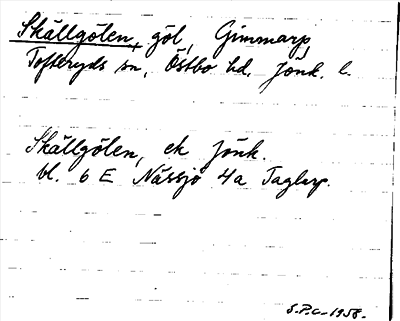 Skällgölen, göl, Gimmarp,
Tofteryds sn, Östbo hd. Jönk. l.
Skällgölen, ek Jönk.
bl. 6 E Nässjö 4a Taglarp.
S.P.C. 1958.